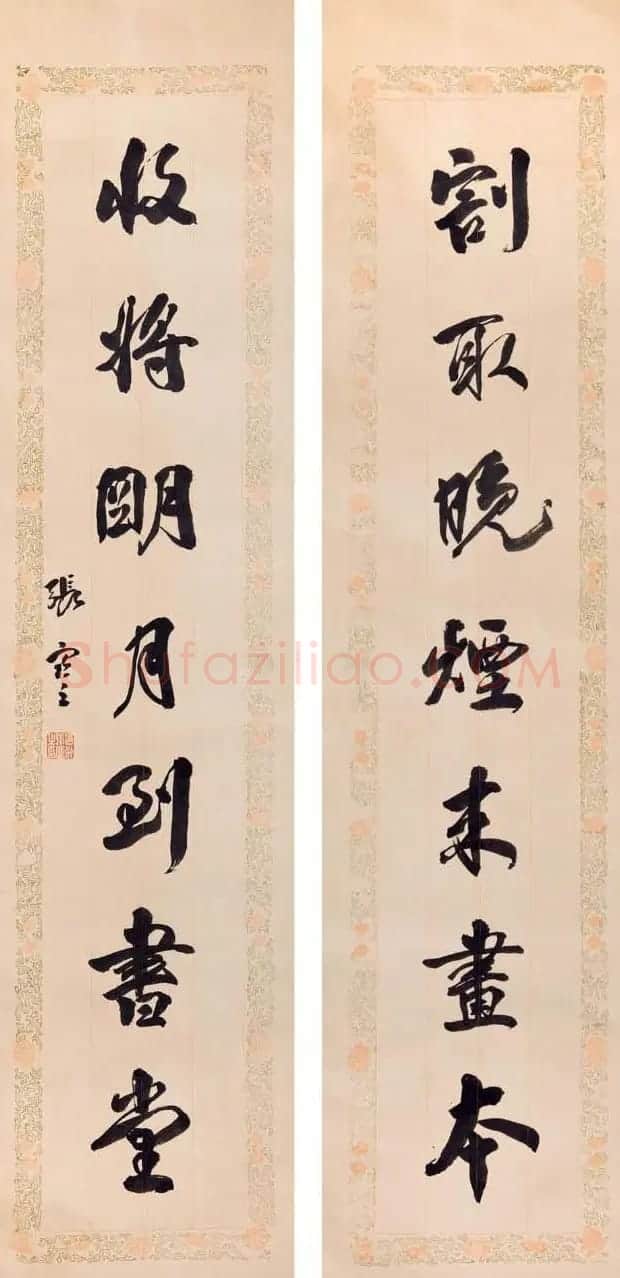 割取晚煙来畫本
收將朙月到書堂
張
Shufaziliao.com